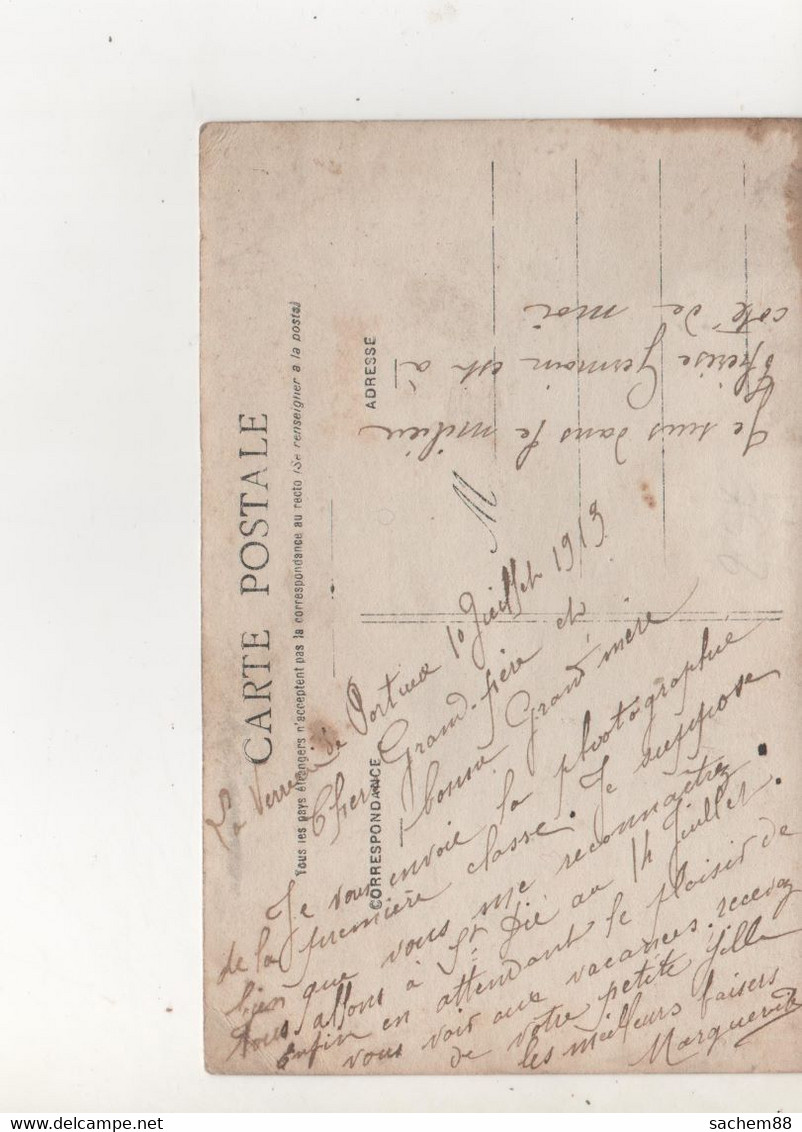 CARTE POSTALE
Tous les pays étrangers n'acceptent pas la correspondance au recto (Se renseigner à la poste)
CORRESPONDANCE
ADRESSE
M
La Verrerie de Portieux 10 Juillet 1913
Cher Grand-père et
bonne Grand'mère
Je vous envoie la photographie
de la première classe. Je suppose
bien que vous me reconnaîtrez.
Nous allons à St Dié au 14 Juillet.
Enfin en attendant le plaisir de
vous voir aux vacances, recevez
de votre petite fille
les meilleurs baisers
Marguerite
Je suis dans le milieu
Thérèse Germain est à
coté de moi
sachem88